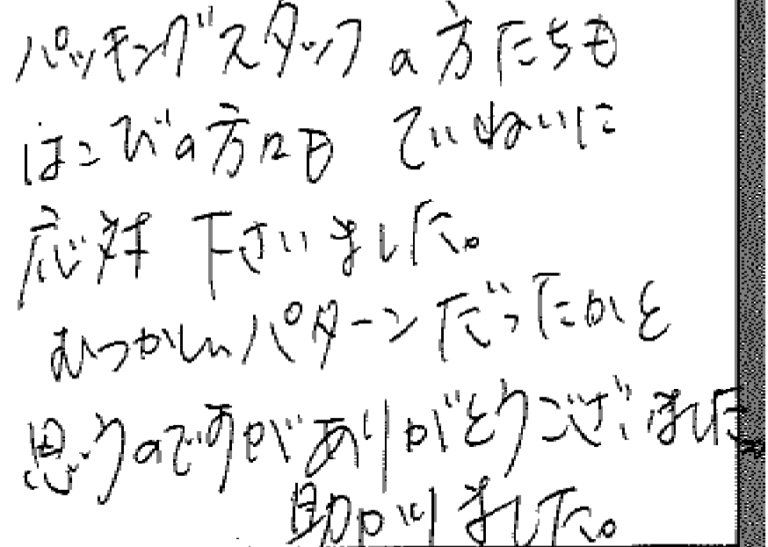 パッキングスタッフの方たちも
はこびの方々も ていねいに
応対 下さいました。
むつかしいパターンだったかと
思うのですがありがとうございました。
助かりました。